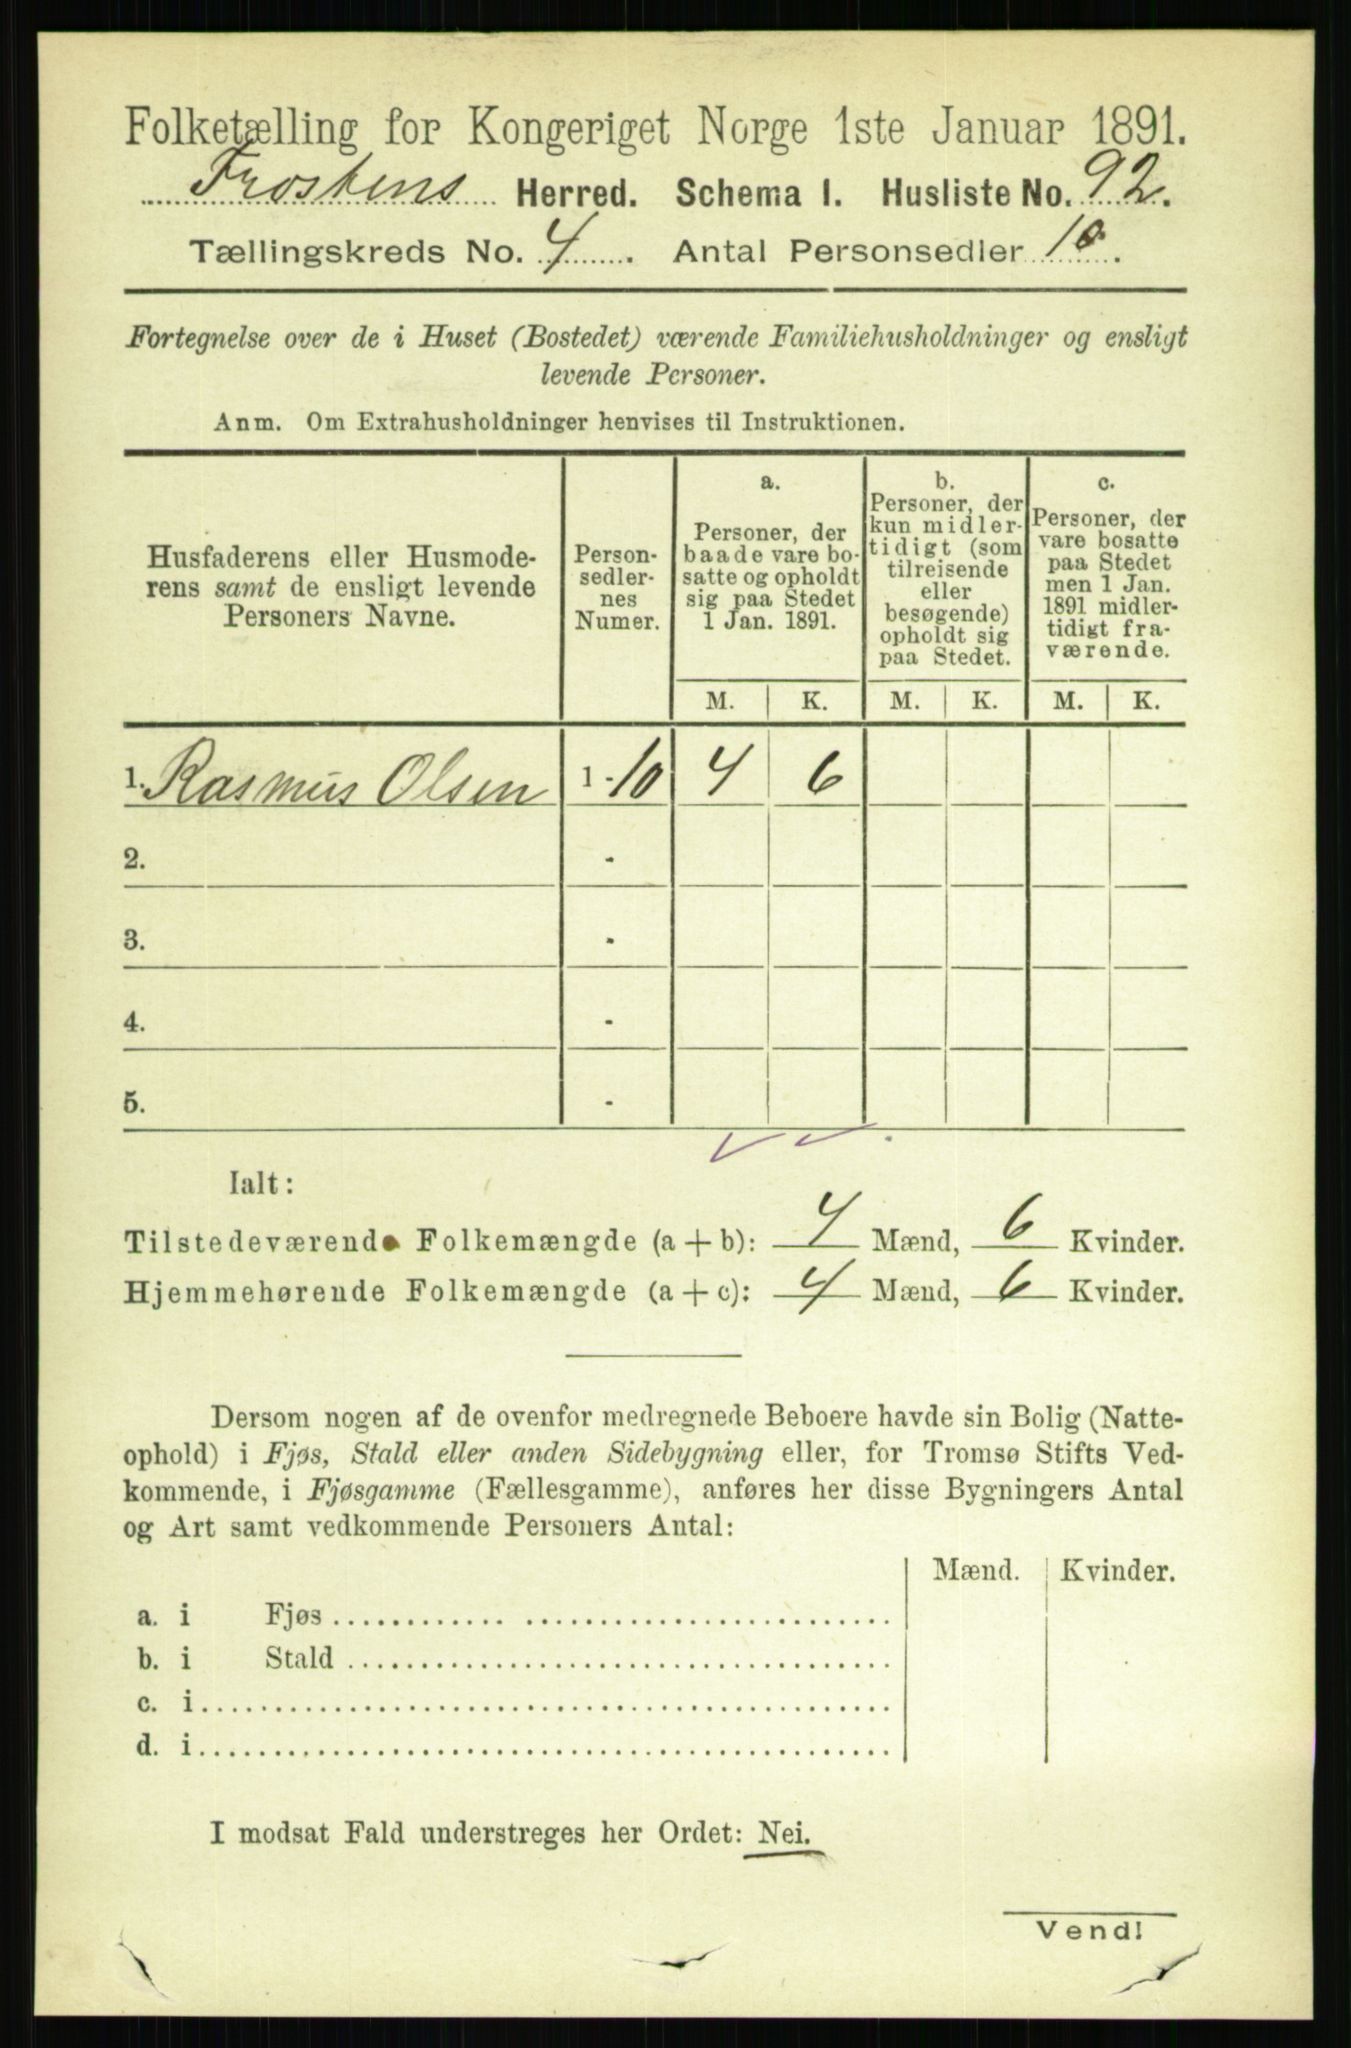 Folketælling for Kongeriget Norge 1ste Januar 1891.
Frostens Herred. Schema I. Husliste No. 92.
Tællingskreds No. 4. Antal Personsedler 10.
Fortegnelse over de i Huset (Bostedet) værende Familiehusholdninger og ensligt
levende Personer.
Anm. Om Extrahusholdninger henvises til Instruktionen.
Husfaderens eller Husmode-
rens samt de ensligt levende
Personers Navne.
Person-
sedler-
nes
Numer.
a.
Personer, der
baade vare bo-
satte og opholdt
sig paa Stedet
1 Jan. 1891.
b.
Personer, der
kun midler-
tidigt (som
tilreisende
eller
besøgende)
opholdt sig
paa Stedet.
c.
Personer, der
vare bosatte
paa Stedet
men 1 Jan.
1891 midler-
tidigt fra-
værende.
M. K. M. K. M. K.
1. Rasmus Olsen 1 - 10 4 6
2. -
3. -
4. -
5. -
Ialt:
Tilstedeværende Folkemængde (a + b): 4 Mænd, 6 Kvinder.
Hjemmehørende Folkemængde (a + c): 4 Mænd, 6 Kvinder.
Dersom nogen af de ovenfor medregnede Beboere havde sin Bolig (Natte-
ophold) i Fjøs, Stald eller anden Sidebygning eller, for Tromsø Stifts Ved-
kommende, i Fjøsgamme (Fællesgamme), anføres her disse Bygningers Antal
og Art samt vedkommende Personers Antal:
Mænd. Kvinder.
a. i Fjøs
b. i Stald
c. i
d. i
I modsat Fald understreges her Ordet: Nei.
Vend!